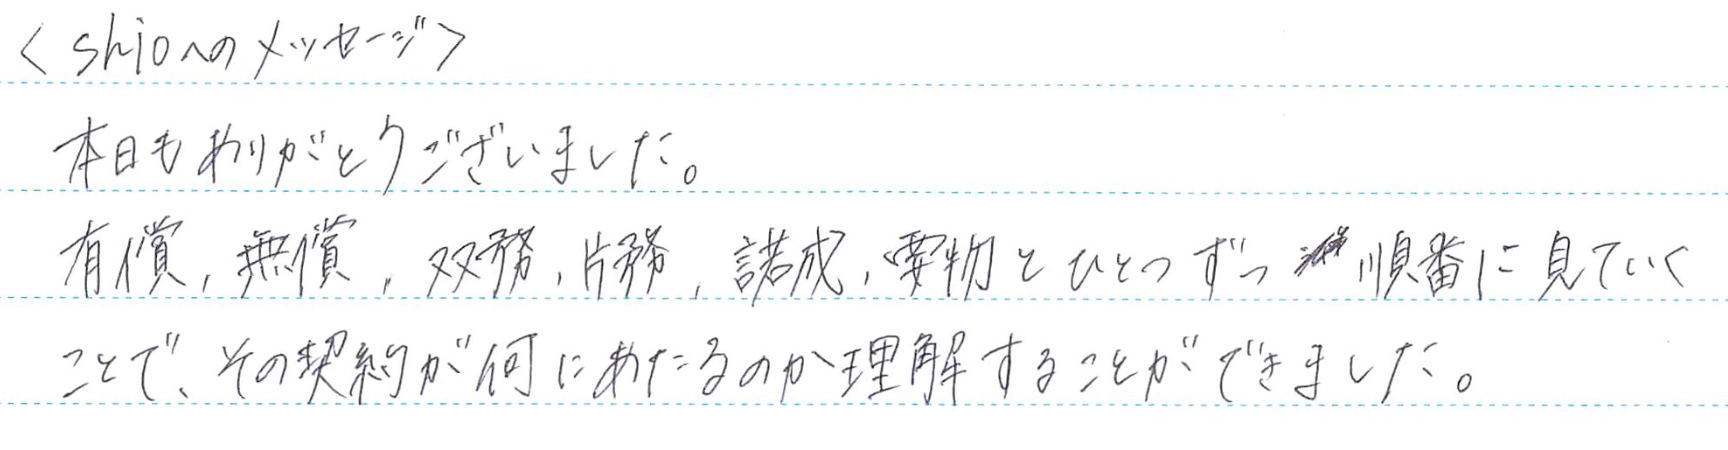 <shioへのメッセージ>
本日もありがとうございました。
有償,無償,双務,片務,諾成,要物とひとつずつ順番に見ていく
ことで、その契約が何にあたるのか理解することができました。